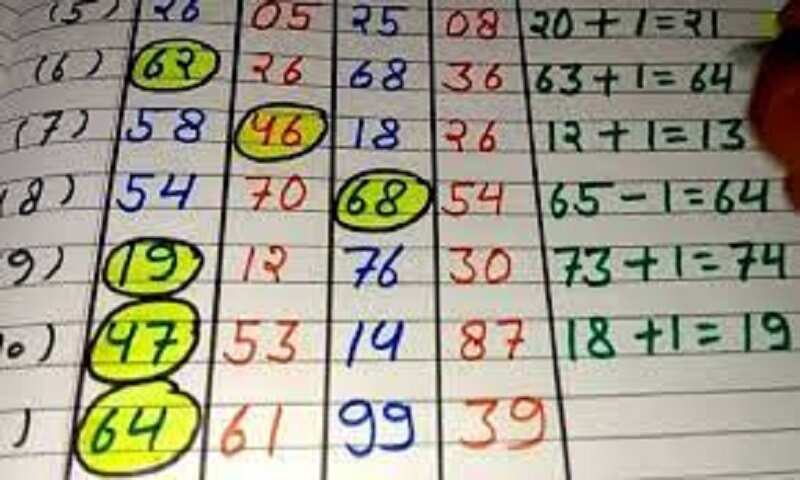 (5) 26 05 25 08 20+1=21
(6) 62 26 68 36 63+1=64
(7) 58 46 18 26 12+1=13
(8) 54 70 68 54 65-1=64
9) 19 12 76 30 73+1=74
0) 47 53 14 87 18+1=19
) 64 61 99 39